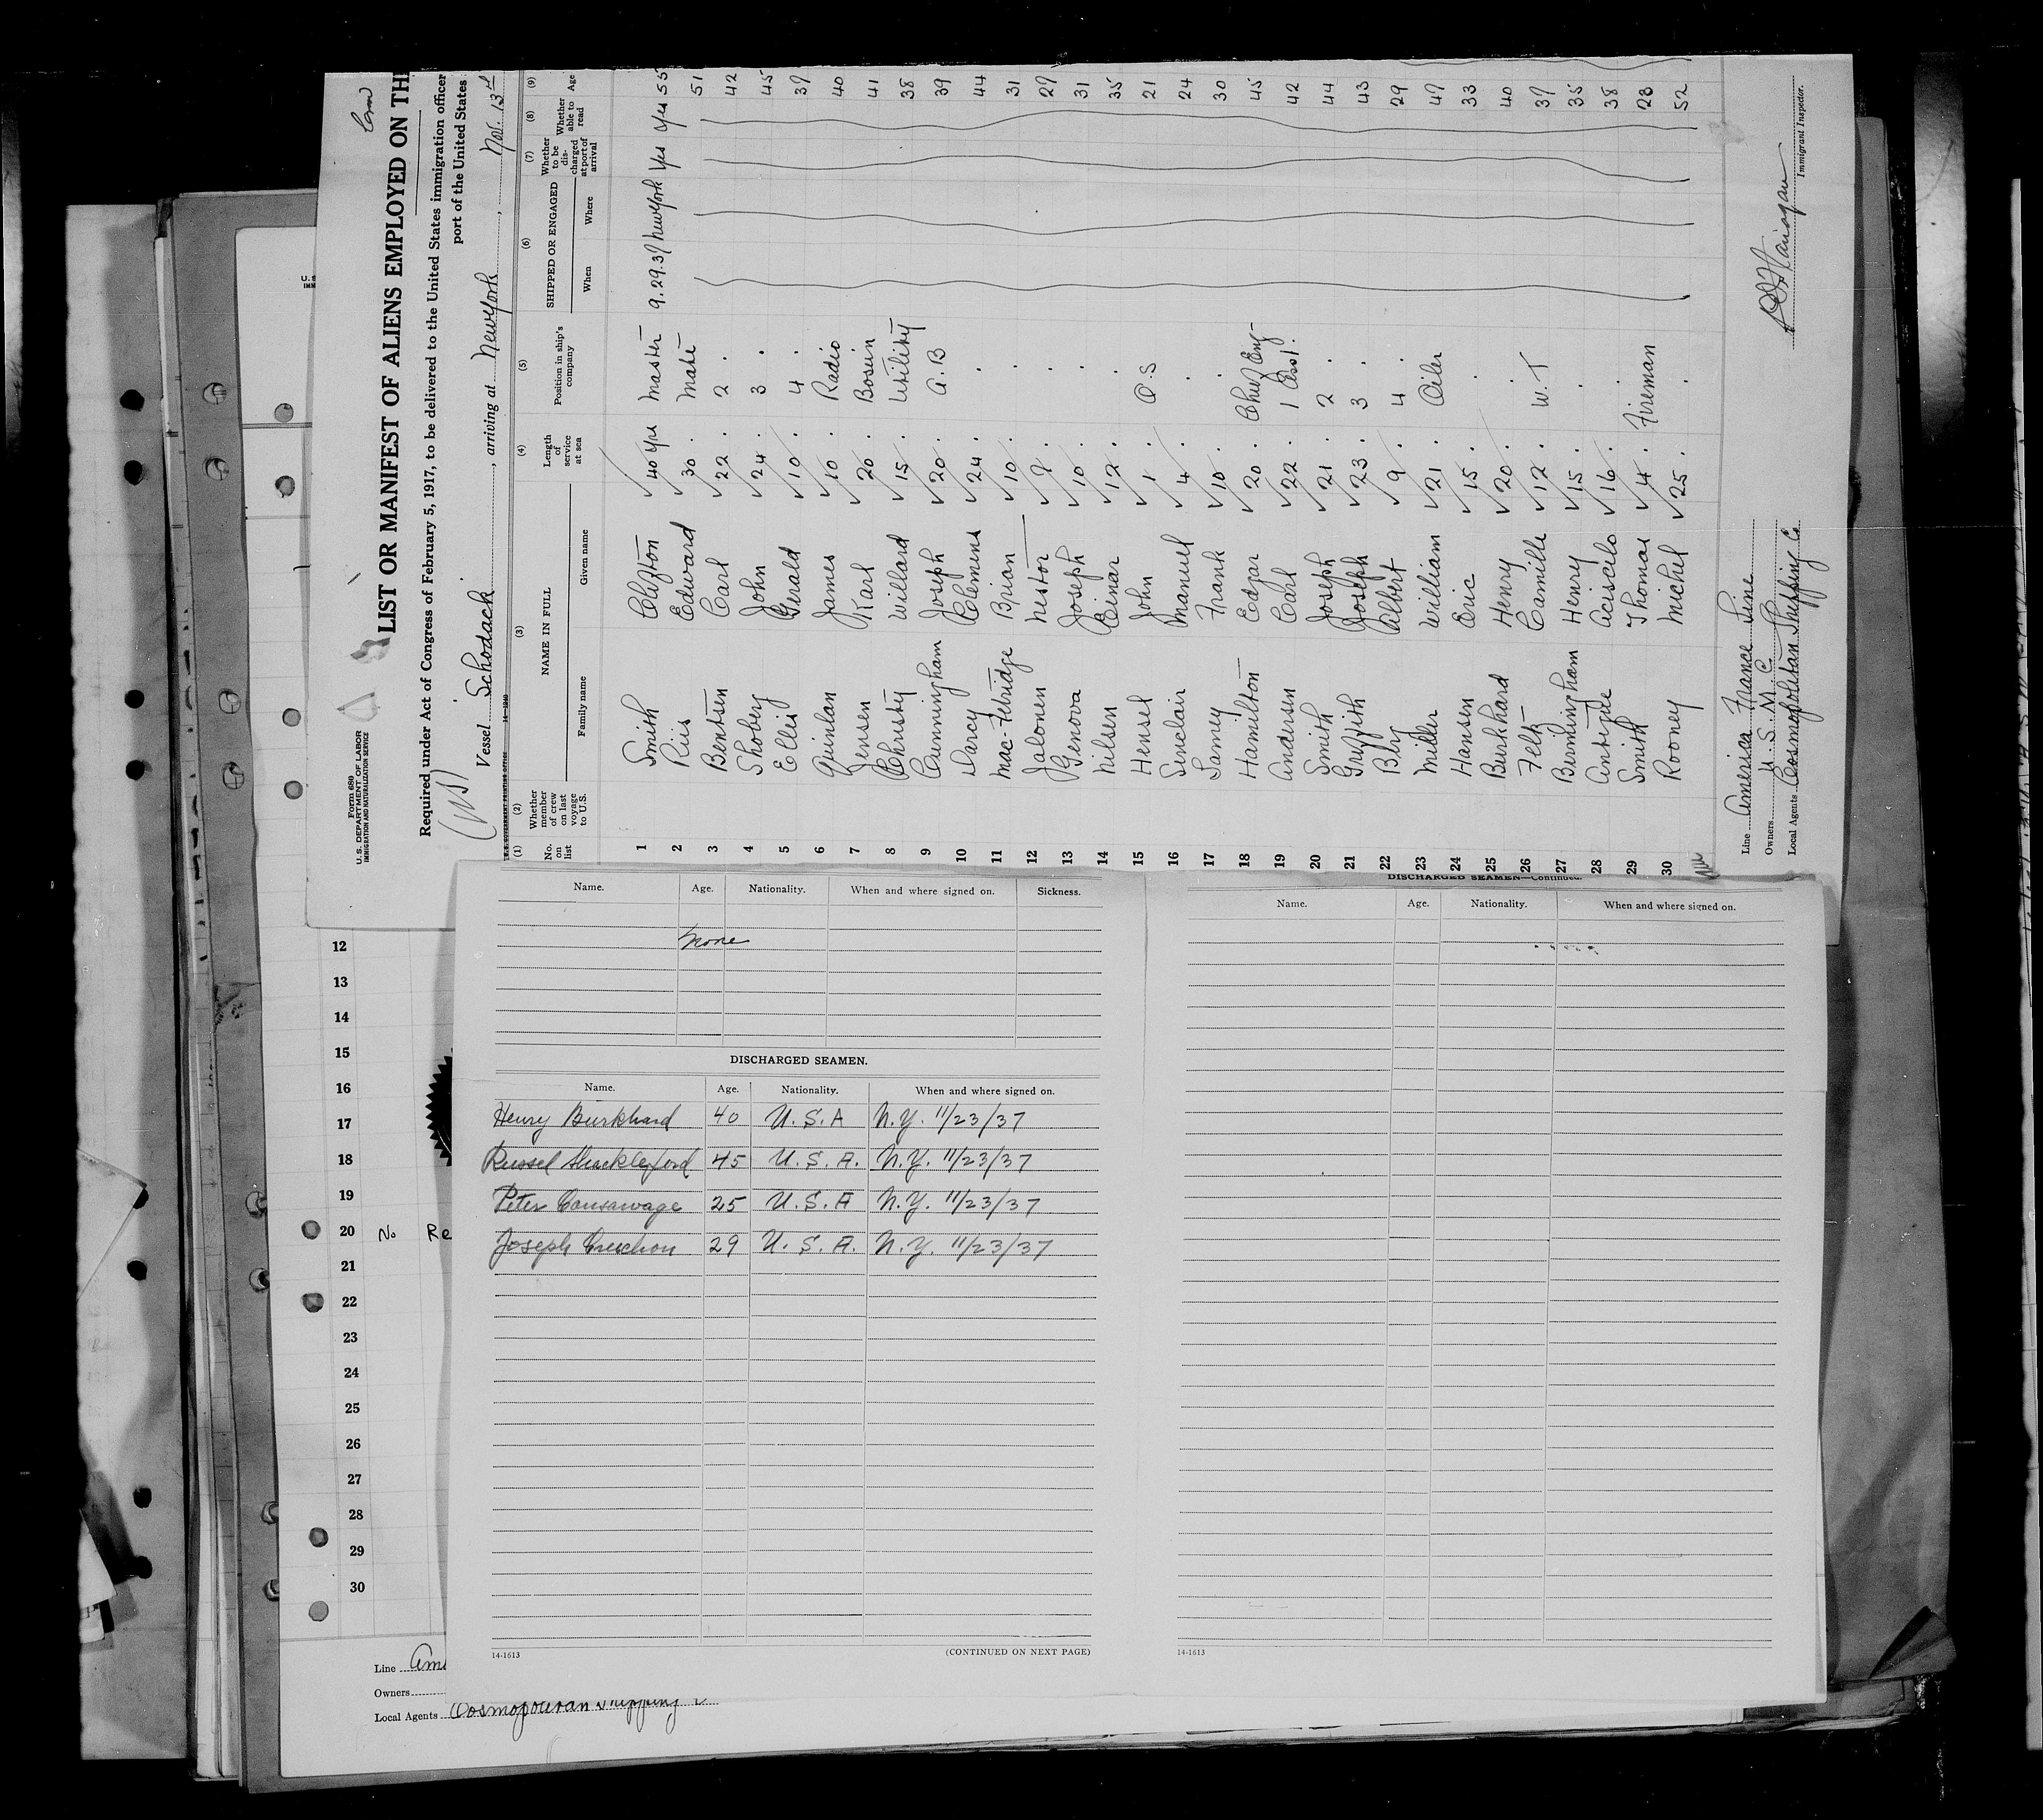 Form 689
U.S. DEPARTMENT OF LABOR
IMMIGRATION AND NATURALIZATION SERVICE
LIST OR MANIFEST OF ALIENS EMPLOYED ON TH
Required under Act of Congress of February 5, 1917, to be delivered to the United States immigration officer
port of the United States
Vessel Schodack, arriving at New York, Nov. 13th
(1) No. on list
(2) Whether member of crew on last voyage to U.S.
(3) NAME IN FULL Family name Given name
(4) Length of service at sea
(5) Position in ship's company
(6) SHIPPED OR ENGAGED When Where
(7) Whether to be discharged at port of arrival
(8) Whether able to read
(9) Age
1 Smith Clifton 40 yrs Master 9.29.37 New York Yes Yes 55
2 Riis Edward 30 Mate 51
3 Bentsen Carl 22 2 42
4 Shoberg John 24 3 45
5 Ellis Gerald 10 4 37
6 Quinlan James 10 Radio 40
7 Jensen Karl 20 Bosun 41
8 Christy Willard 15 Utility 38
9 Cunningham Joseph 20 A.B 39
10 Darcy Clemens 24 44
11 Mac-Fetridge Brian 10 31
12 Jalonen Nestor 9 27
13 Genova Joseph 10 31
14 Nilsen Einar 12 35
15 Hensel John 1 O.S 21
16 Sinclair Manuel 4 24
17 Famey Frank 10 30
18 Hamilton Edgar 20 Chief Eng 45
19 Andersen Carl 22 1 Asst. 42
20 Smith Joseph 21 2 44
21 Griffith Joseph 23 3 43
22 Bly Albert 9 4 29
23 Miller William 21 Oiler 47
24 Hansen Eric 15 33
25 Burkhard Henry 20 40
26 Felt Camille 12 W.T 37
27 Birmingham Henry 15 35
28 Antique Acisclo 16 38
29 Smith Thomas 4 Fireman 28
30 Rooney Michel 25 52
Line America France Line
Owners U.S.M.C
Local Agents Cosmopolitan Shipping Co
Immigrant Inspector.
Name. Age. Nationality. When and where signed on. Sickness.
None
DISCHARGED SEAMEN.
Name. Age. Nationality. When and where signed on.
Henry Burkhard 40 U.S.A N.Y. 11/23/37
Russel Shackleford 45 U.S.A. N.Y. 11/23/37
Peter Consawage 25 U.S.A N.Y. 11/23/37
Joseph 29 U.S.A. N.Y. 11/23/37
14-1613 (CONTINUED ON NEXT PAGE)
DISCHARGED SEAMEN—Continued.
Name. Age. Nationality. When and where signed on.
14-1613
12
13
14
15
16
17
18
19
20 No Re
21
22
23
24
25
26
27
28
29
30
Line Ame
Owners
Local Agents Cosmopolitan Shipping